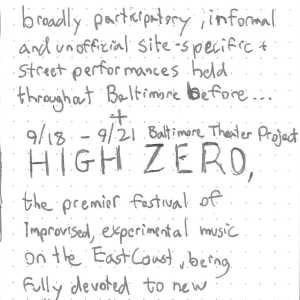 broadly participatory, informal
and unofficial site-specific +
street performances held
throughout Baltimore before...
+
9/18 - 9/21 Baltimore Theater Project
HIGH ZERO,
the premier festival of
Improvised, experimental music
on the East Coast, being
fully devoted to new